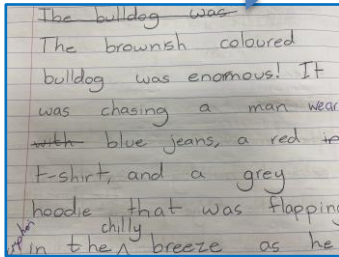 The bulldog was
The brownish coloured
bulldog was enormous! It
was chasing a man wear
with blue jeans, a red
t-shirt, and a grey
hoodie that was flapping
chilly
in the ^ breeze as he